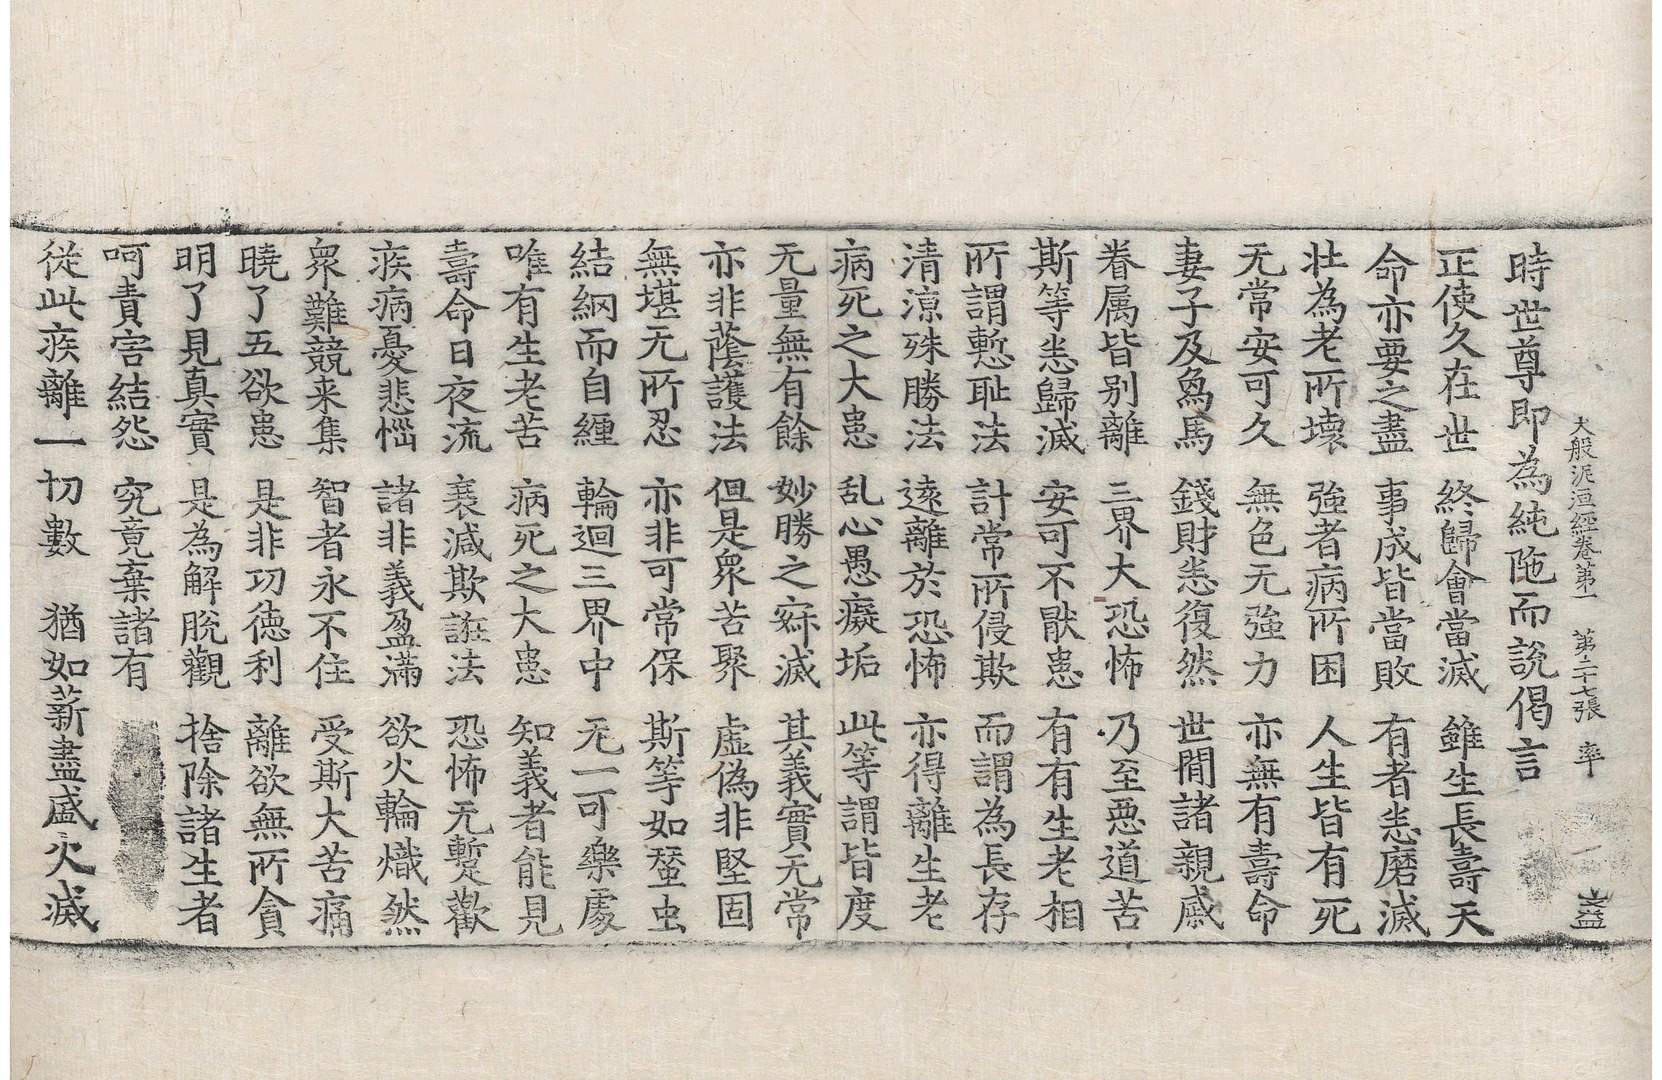 大般泥洹經卷第一 第二十七張 率 益
時世尊即為純陁而說偈言
正使久在世 終歸會當滅 雖生長壽天
命亦要之盡 事成皆當敗 有者悉磨滅
壮為老所壞 強者病所困 人生皆有死
无常安可久 無色无強力 亦無有壽命
妻子及烏馬 錢財悉復然 世間諸親戚
眷属皆别離 三界大恐怖 乃至惡道苦
斯等悉歸滅 安可不猒患 有有生老相
所謂慙耻法 計常所侵欺 而謂為長存
清涼殊勝法 遠離於恐怖 亦得離生老
病死之大患 乱心愚癡垢 此等謂皆度
无量無有餘 妙勝之𡧯滅 其義實无常
亦非蔭護法 但是衆苦聚 虛偽非堅固
無堪无所忍 亦非可常保 斯等如蚕虫
結網而自纏 輪迴三界中 无一可樂處
唯有生老苦 病死之大患 知義者能見
壽命日夜流 衰減欺誑法 恐怖无蹔歡
疾病憂悲惱 諸非義盈滿 欲火輪熾然
衆難競来集 智者永不住 受斯大苦痛
曉了五欲患 是非功徳利 離欲無所貪
明了見真實 是為解脫觀 捨除諸生者
呵責害結怨 究竟棄諸有
從此疾離一切數 猶如薪盡盛火滅